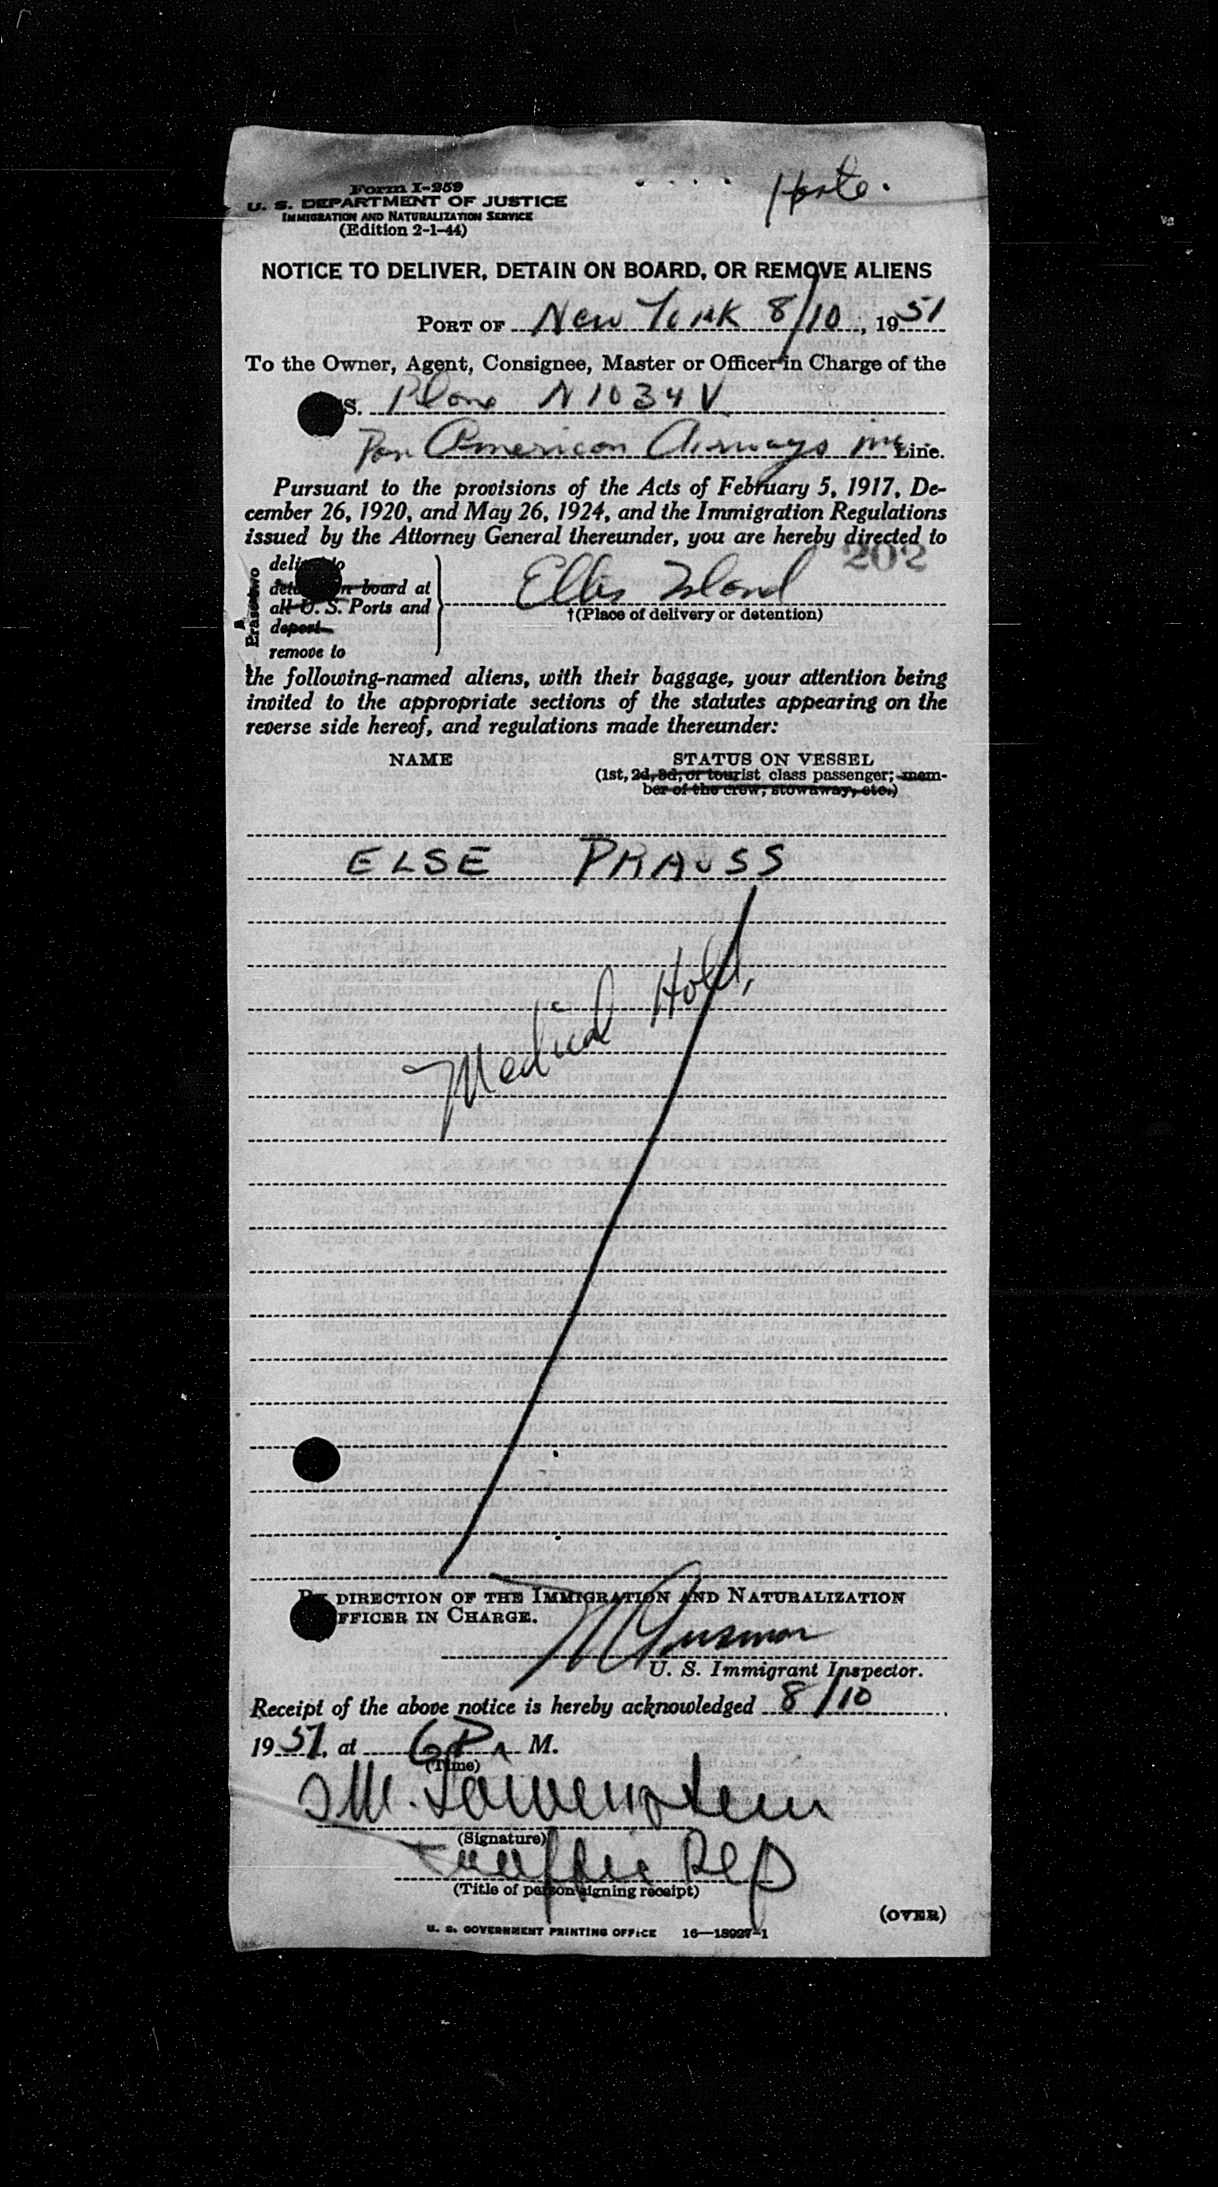 Form I-259
U. S. DEPARTMENT OF JUSTICE
IMMIGRATION AND NATURALIZATION SERVICE
(Edition 2-1-44)
NOTICE TO DELIVER, DETAIN ON BOARD, OR REMOVE ALIENS
PORT OF New York 8/10, 1951
To the Owner, Agent, Consignee, Master or Officer in Charge of the
S. Plane N1034V
Pan American Airways inc Line.
Pursuant to the provisions of the Acts of February 5, 1917, De-
cember 26, 1920, and May 26, 1924, and the Immigration Regulations
issued by the Attorney General thereunder, you are hereby directed to
202
deliver to
detain on board at
all U. S. Ports and
deport
remove to
Erase two
Ellis Island
†(Place of delivery or detention)
the following-named aliens, with their baggage, your attention being
invited to the appropriate sections of the statutes appearing on the
reverse side hereof, and regulations made thereunder:
NAME STATUS ON VESSEL
(1st, 2d, 3d, or tourist class passenger; mem-
ber of the crew; stowaway, etc.)
ELSE PRAUSS
Medical Hold,
BY DIRECTION OF THE IMMIGRATION AND NATURALIZATION
OFFICER IN CHARGE.
U. S. Immigrant Inspector.
Receipt of the above notice is hereby acknowledged 8/10
1951, at 6 P M.
(Time)
(Signature)
Traffic Rep
(Title of person signing receipt)
(OVER)
U. S. GOVERNMENT PRINTING OFFICE 16—18927-1